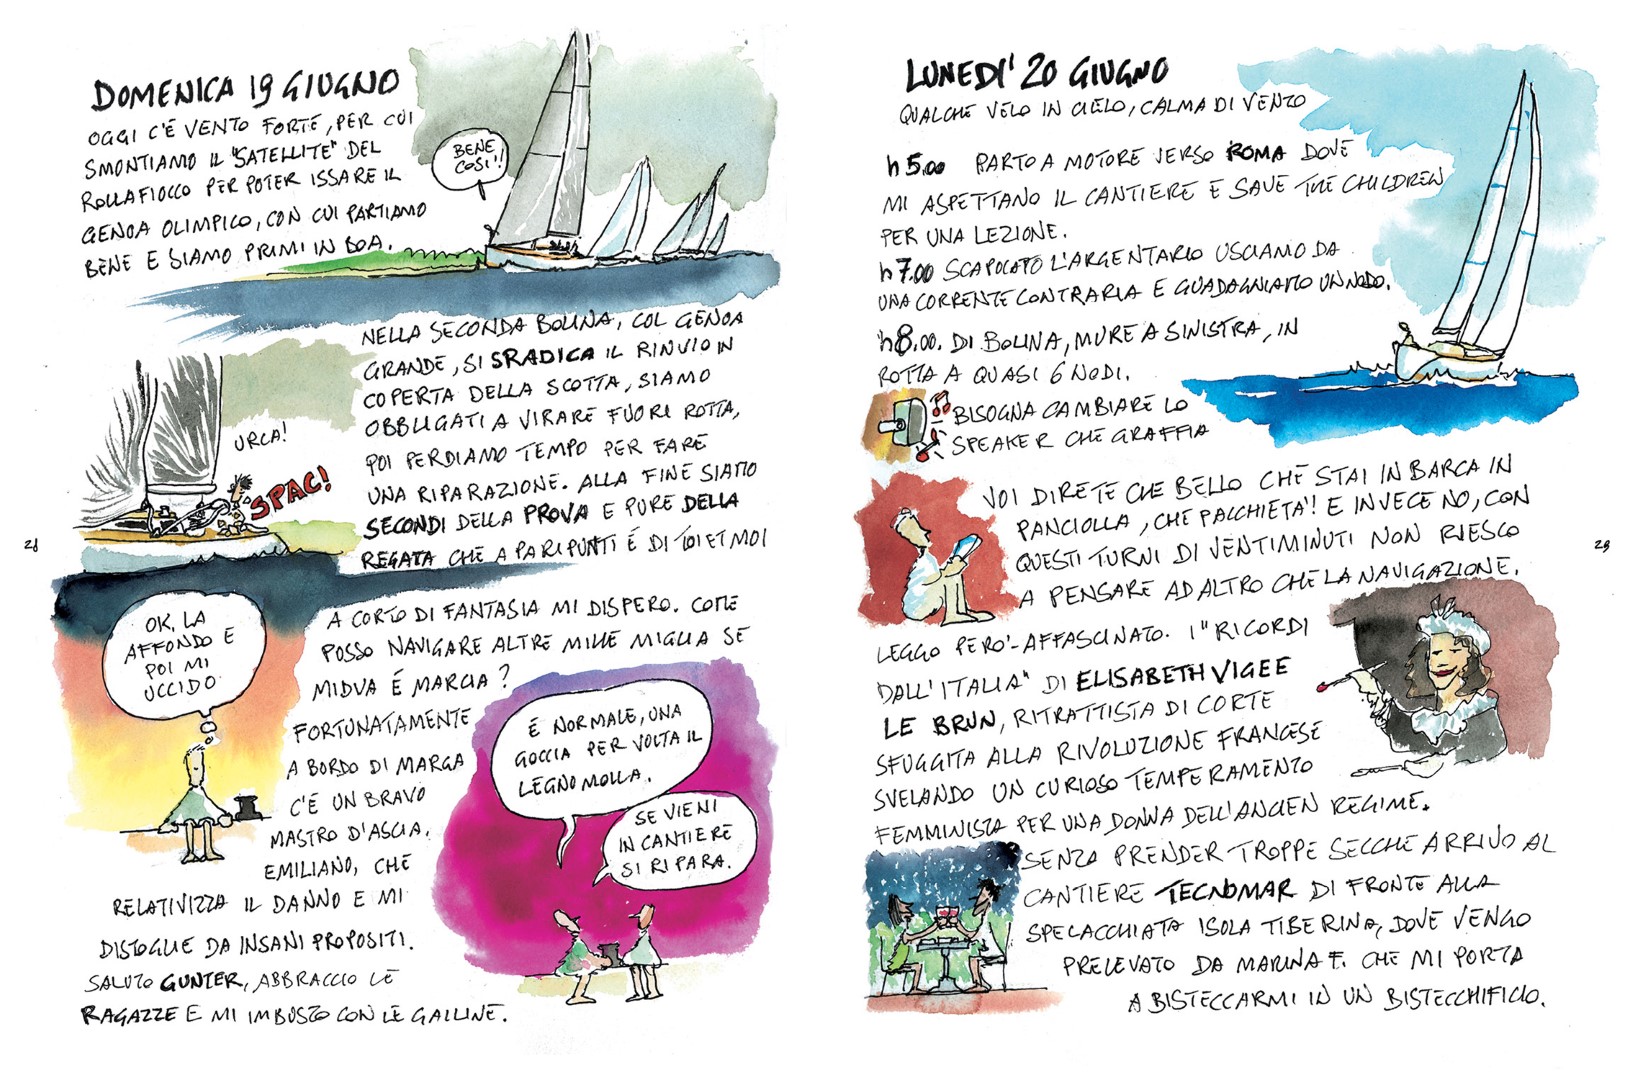 DOMENICA 19 GIUGNO
OGGI C'É VENTO FORTE, PER CUI
SMONTIAMO IL "SATELLITE" DEL
ROLLAFIOCCO PER POTER ISSARE IL
GENOA OLIMPICO, CON CUI PARTIAMO
BENE E SIAMO PRIMI IN BOA.
BENE
COSI'!
NELLA SECONDA BOLINA, COL GENOA
GRANDE, SI SRADICA IL RINVIO IN
COPERTA DELLA SCOTTA, SIAMO
OBBLIGATI A VIRARE FUORI ROTTA,
POI PERDIAMO TEMPO PER FARE
UNA RIPARAZIONE. ALLA FINE SIAMO
SECONDI DELLA PROVA E PURE DELLA
REGATA CHE A PARI PUNTI É DI TOI ET MOI
URCA!
SPAC!
28
A CORTO DI FANTASIA MI DISPERO. COME
POSSO NAVIGARE ALTRE MILLE MIGLIA SE
MIDVA É MARCIA?
OK, LA
AFFONDO E
POI MI
UCCIDO
FORTUNATAMENTE
A BORDO DI MARGA
C'É UN BRAVO
MASTRO D'ASCIA,
EMILIANO, CHE
RELATIVIZZA IL DANNO E MI
DISTOGLIE DA INSANI PROPOSITI.
SALUTO GUNTER, ABBRACCIO LE
RAGAZZE E MI IMBUSTO CON LE GALLINE.
É NORMALE, UNA
GOCCIA PER VOLTA IL
LEGNO MOLLA.
SE VIENI
IN CANTIERE
SI RIPARA.
LUNEDI' 20 GIUGNO
QUALCHE VELO IN CIELO, CALMA DI VENTO
h 5.00 PARTO A MOTORE VERSO ROMA DOVE
MI ASPETTANO IL CANTIERE E SAVE THE CHILDREN
PER UNA LEZIONE.
h 7.00 SCAPOLATO L'ARGENTARIO USCIAMO DA
UNA CORRENTE CONTRARIA E GUADAGNIAMO UN NODO.
h 8.00. DI BOLINA, MURE A SINISTRA, IN
ROTTA A QUASI 6 NODI.
BISOGNA CAMBIARE LO
SPEAKER CHE GRAFFIA
VOI DIRETE CHE BELLO CHE STAI IN BARCA IN
PANCIOLLA, CHE PACCHIETA'! E INVECE NO, CON
QUESTI TURNI DI VENTIMINUTI NON RIESCO
A PENSARE AD ALTRO CHE LA NAVIGAZIONE.
29
LEGGO PERO'-AFFASCINATO. I "RICORDI
DALL'ITALIA" DI ELISABETH VIGEE
LE BRUN, RITRATTISTA DI CORTE
SFUGGITA ALLA RIVOLUZIONE FRANCESE
SVELANDO UN CURIOSO TEMPERAMENTO
FEMMINISTA PER UNA DONNA DELL'ANCIEN REGIME.
SENZA PRENDER TROPPE SECCHE ARRIVO AL
CANTIERE TECNOMAR DI FRONTE ALLA
SPELACCHIATA ISOLA TIBERINA, DOVE VENGO
PRELEVATO DA MARINA F. CHE MI PORTA
A BISTECCARMI IN UN BISTECCHIFICIO.